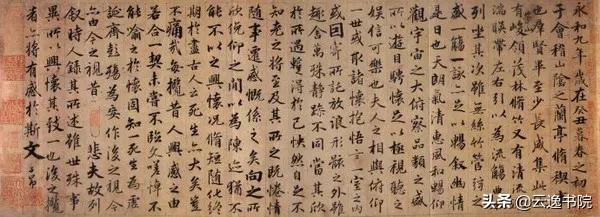 永和九年歲在癸丑暮春之初會
于會稽山陰之蘭亭脩稧事
也群賢畢至少長咸集此地
有峻領茂林脩竹又有清流激
湍暎帶左右引以為流觴曲水
列坐其次雖無絲竹管弦之
盛一觴一詠亦足以暢叙幽情
是日也天朗氣清惠風和暢仰
觀宇宙之大俯察品類之盛
所以遊目騁懷足以極視聽之
娛信可樂也夫人之相與俯仰
一世或取諸懷抱悟言一室之內
或因寄所託放浪形骸之外雖
趣舍萬殊靜躁不同當其欣
於所遇蹔得於己快然自足不
知老之將至及其所之既惓情
隨事遷感慨係之矣向之所
欣俛仰之閒以為陳迹猶不
能不以之興懷況脩短隨化終
期於盡古人云死生亦大矣豈
不痛哉每攬昔人興感之由
若合一契未嘗不臨文嗟悼不
能喻之於懷固知一死生為虛
誕齊彭殤為妄作後之視今
亦由今之視昔悲夫故列
叙時人錄其所述雖世殊事
異所以興懷其致一也後之攬
者亦將有感於斯文
子昂
头条 @云逸书院